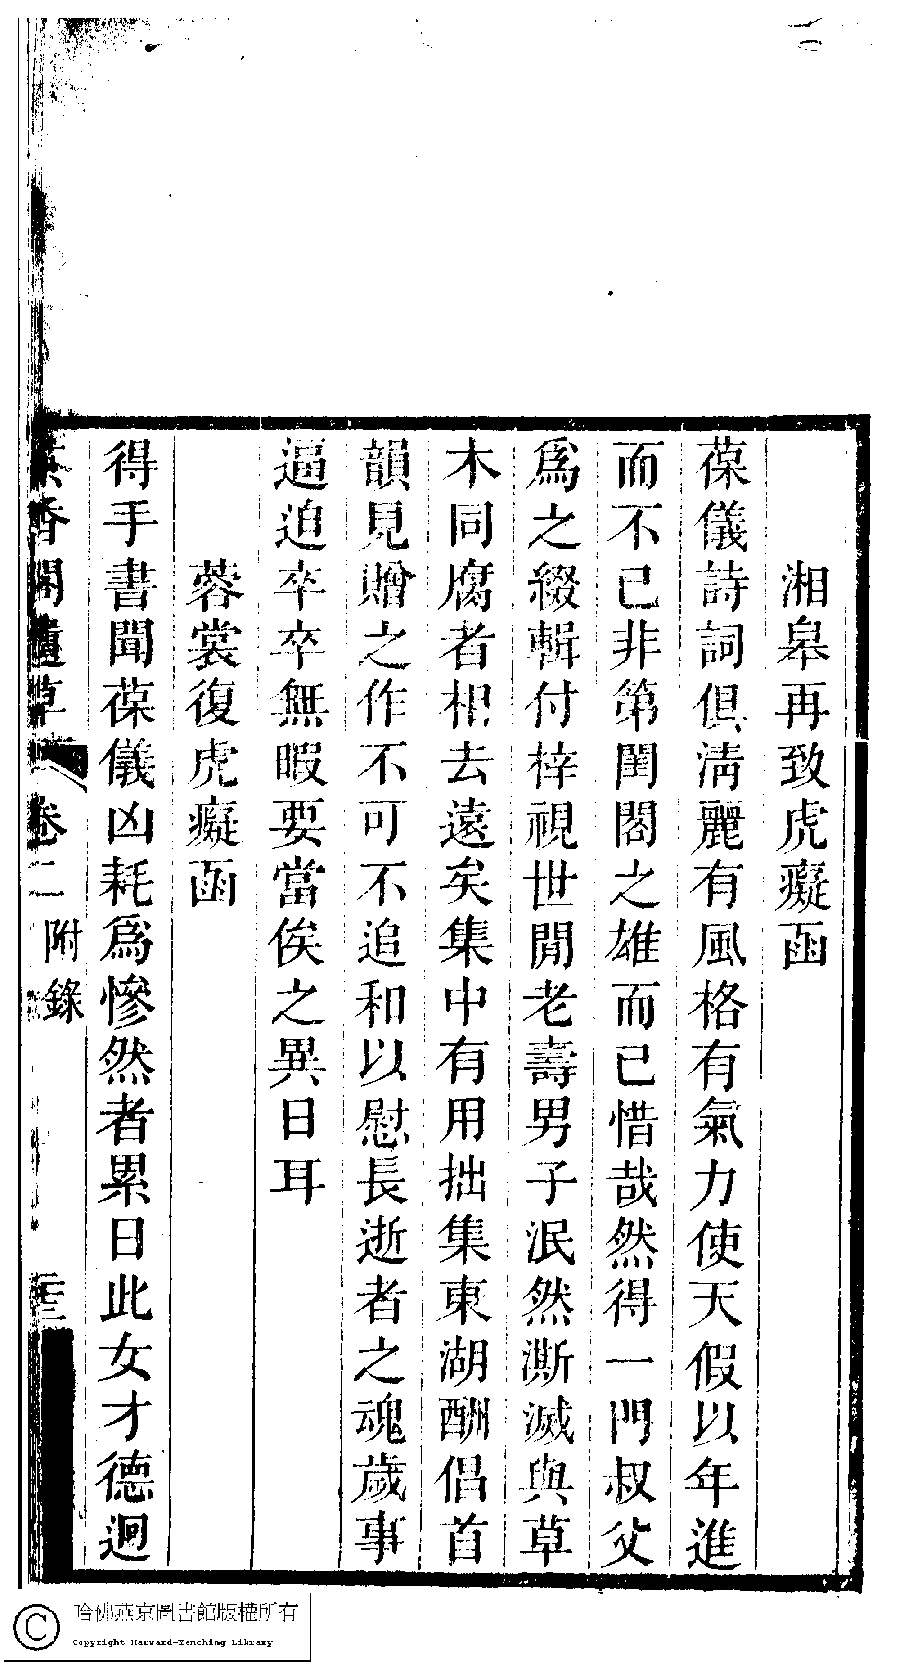 湘皋再致虎癡函
葆儀詩詞俱淸麗有風格有氣力使天假以年進
而不已非第閨閤之雄而已惜哉然得一門叔父
爲之綴輯付梓視世閒老壽男子泯然澌滅與草
木同腐者相去遠矣集中有用拙集東湖酬倡首
韻見贈之作不可不追和以慰長逝者之魂歲事
逼迫卒卒無暇要當俟之異日耳
蓉裳復虎癡函
得手書聞葆儀凶耗爲慘然者累日此女才德迥
香閣遺草
卷二
附錄
哈佛燕京圖書館版權所有
Copyright Harvard-Yenching Library